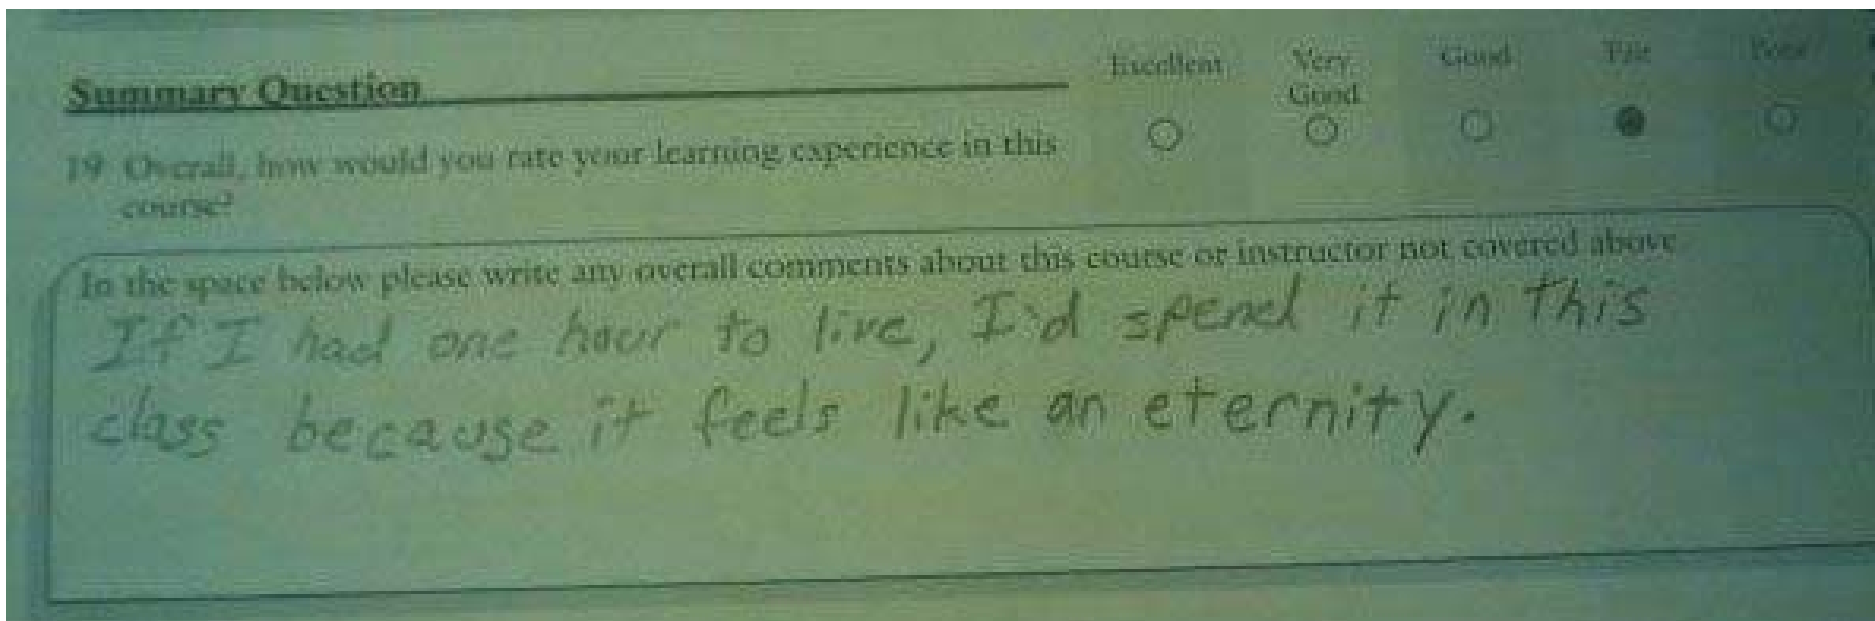 Summary Question
Excellent
Very
Good
Good
Fair
Poor
19 Overall, how would you rate your learning experience in this
course?
In the space below please write any overall comments about this course or instructor not covered above
If I had one hour to live, I'd spend it in this
class because it feels like an eternity.